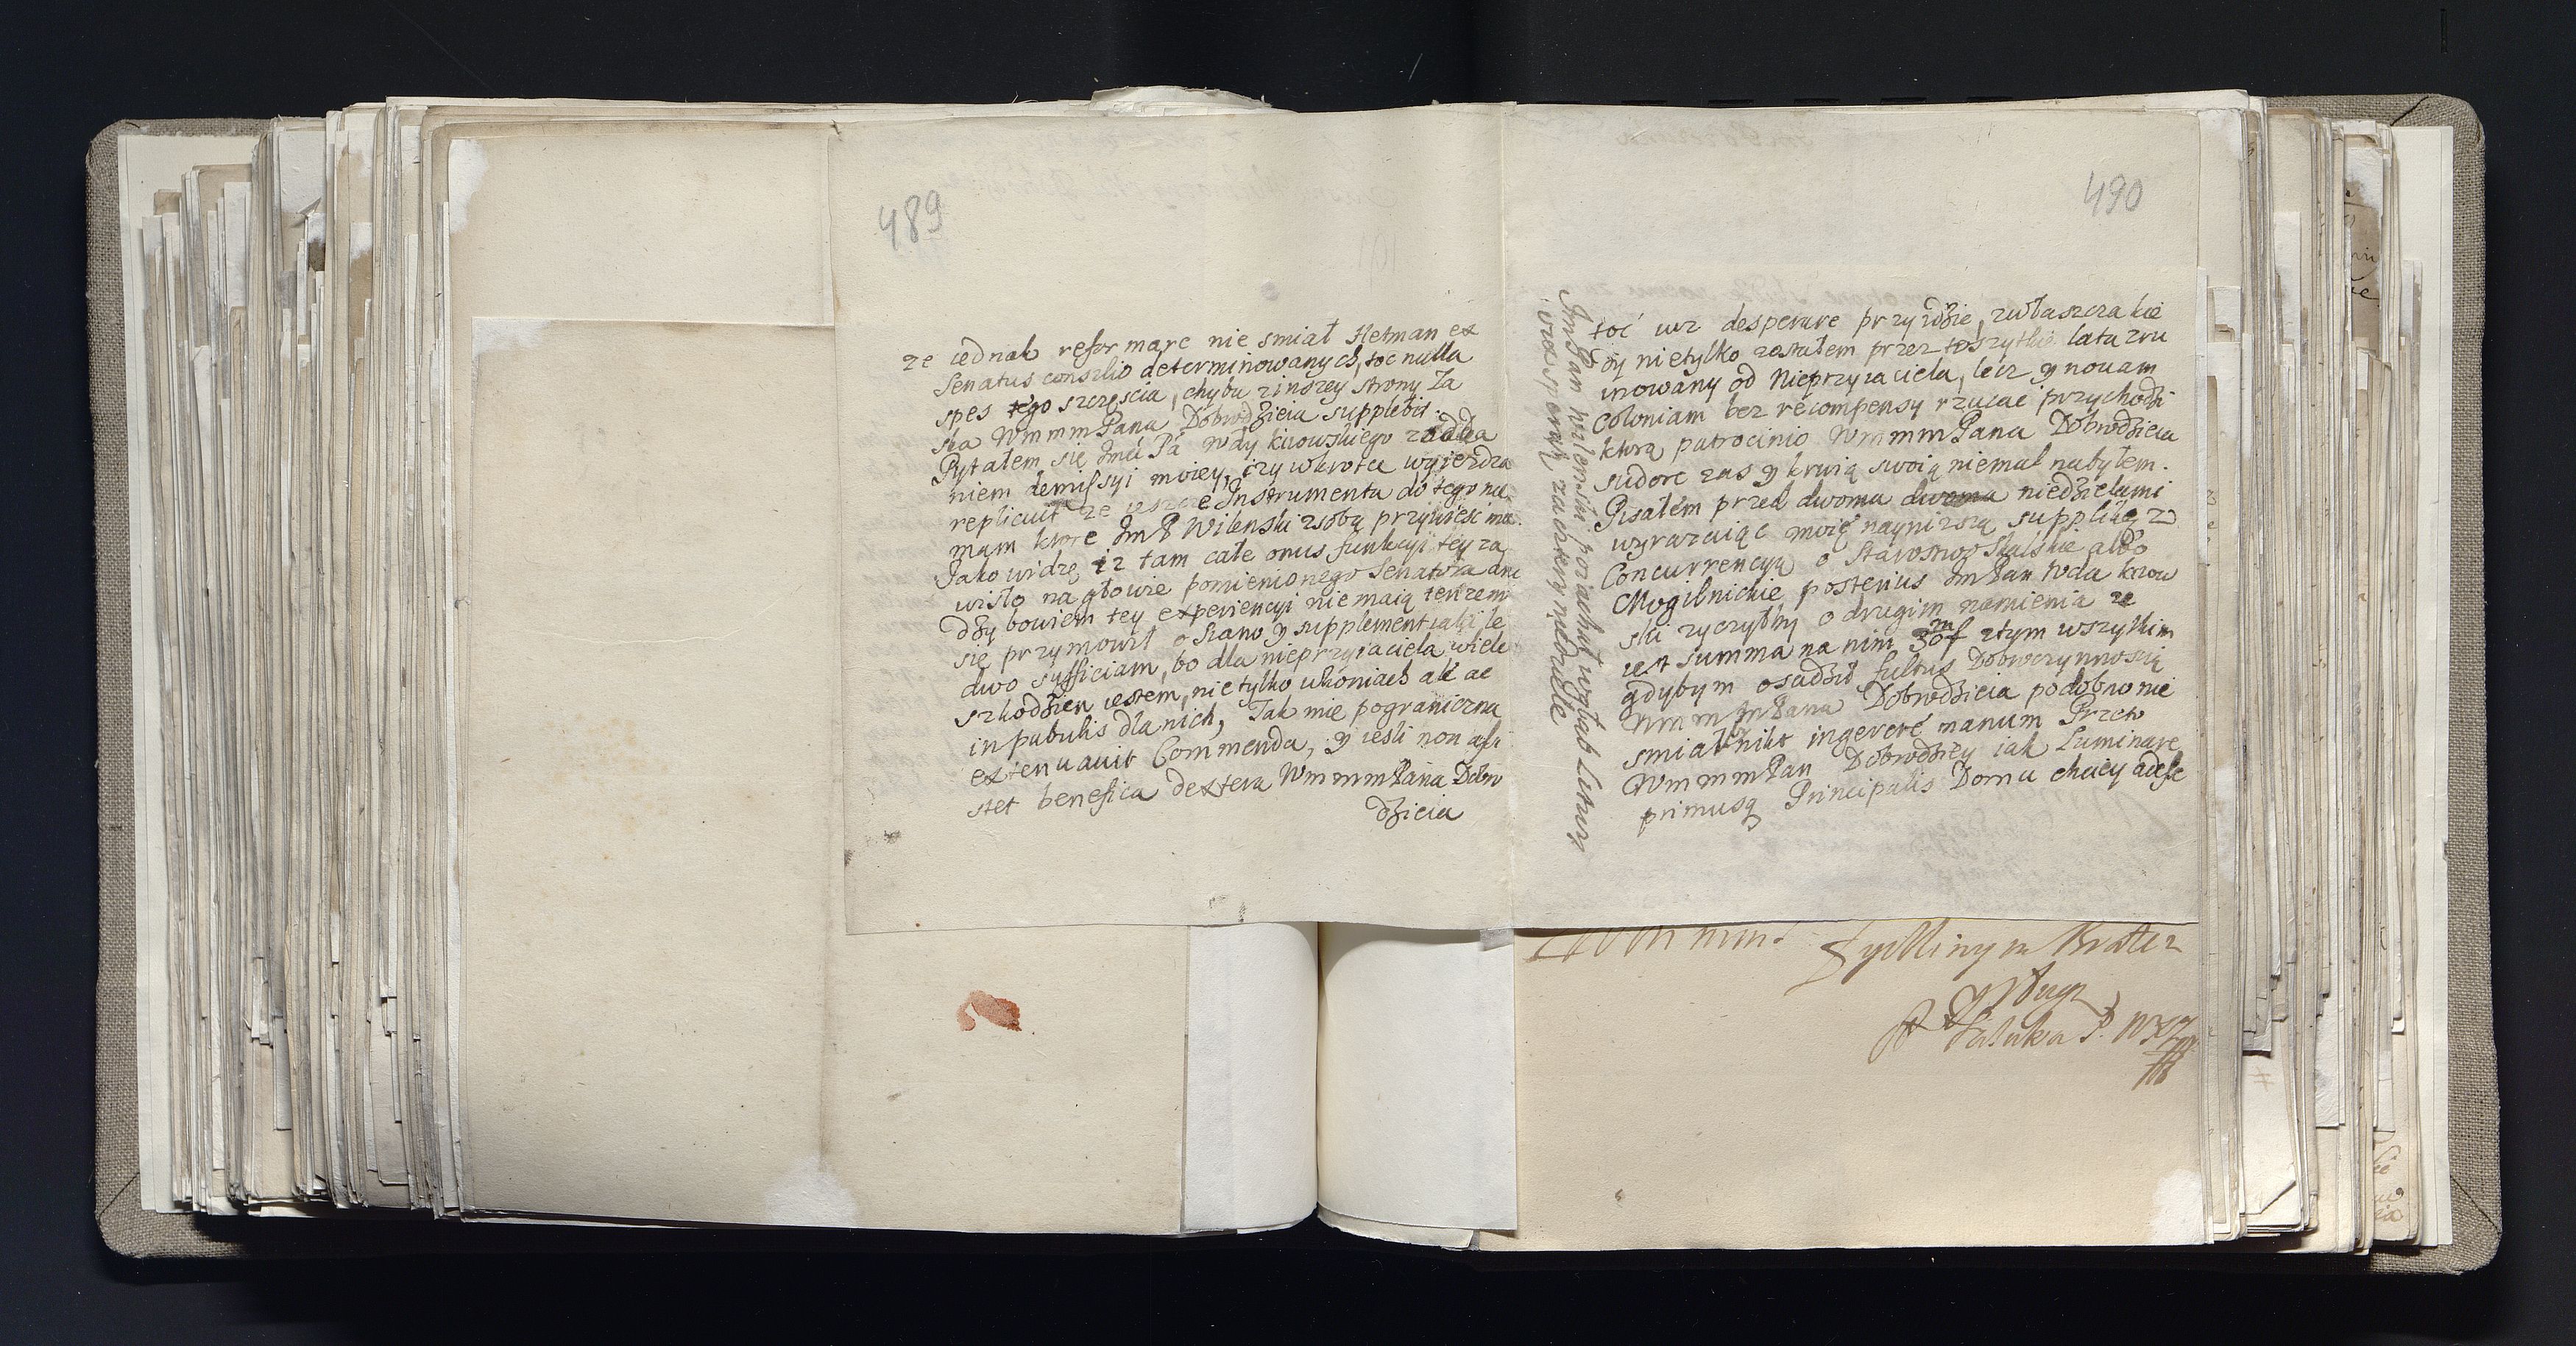 489
ze iednak reformare nie smiał Hetman ex
Senatus consilio determinowanych, toc nulla
spes tego szczęscia, chyba zinszey strony Ła
ska Wmmm Pana Dobrodzieia supplebit.
Pytałem się Jmći Pá Wdy kiiowskiego za
niem demissyi moiey, czy wkrotce wyiezdza
replicuit ze ieszcze Instrumenta do tego nie
mam ktore JmP Wilenski zsobą przywiesc ma.
Jako widzę iz tam całe onus funkcyi tey za
wisło na głowie pomienionego Senatora
dzy bowiem tey experiencyi nie maią
się przymowił o Siano y supplement iaki le
dwo sufficiam, bo dla nieprzyiaciela wiele
szkodzien iestem, nie tylko w koniach ale ae
in pabulis dla nich, Tak mie pograniczna
extenuauit Commenda, y iesli non assi
stet benefica dextera Wmmm Pana Dobro
dzieia
490
toć uz desperare przyidzie, zwłaszcza kie
dy nietylko zostałem przez wszytkie lata zru
inowany od Nieprzyiaciela, lecz y novam
Coloniam bez recompensy rzucac przychodzi
ktorą patrocinio Wmmm Pana Dobrodzieia
sudore zas y krwią swoią niemal nabyłem.
Pisałem przed dwoma dwoma niedzielami
wyrazaiąc moię nayniszą supplikę z
Concurrencyą o Starostwo Skalskie albo
Mogilnickie posterius Jm Pan Wda kiiow
ski zyczyłby o drugim namienia ze
iest summa na nim 30 m/f ztym wszytkim
gdybym osadził fultus Dobroczynnoscią
Wmm Jm Pana Dobrodzieia podobno nie
smiałby nikt ingerere manum Przeto
Wmmm Pan Dobrodziey iak Luminare
primusq Principalis Domu chciey adesse
Jm Pan Wilenski poiachał wgłab Litwy
za cztery niedziele
Wm mm.
Zyczliwym Bratem
y Sługą